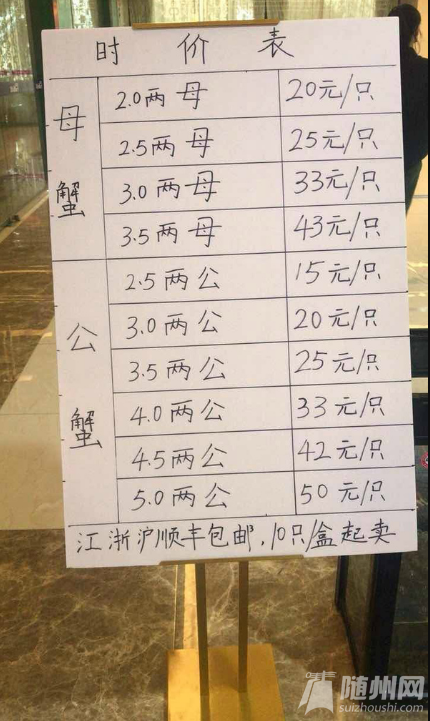 时价表
母蟹
2.0两母 20元/只
2.5两母 25元/只
3.0两母 33元/只
3.5两母 43元/只
公蟹
2.5两公 15元/只
3.0两公 20元/只
3.5两公 25元/只
4.0两公 33元/只
4.5两公 42元/只
5.0两公 50元/只
江浙沪顺丰包邮,10只/盒起卖
随州网
suizhoushi.com